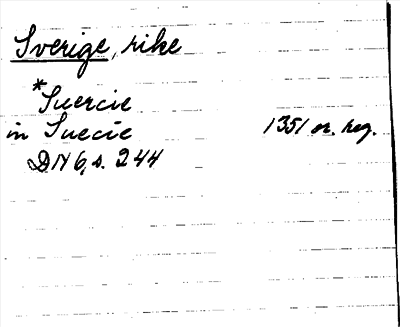 Sverige, rike
*Suercie
in Suecie 1351 or. reg.
DN 6, s. 244